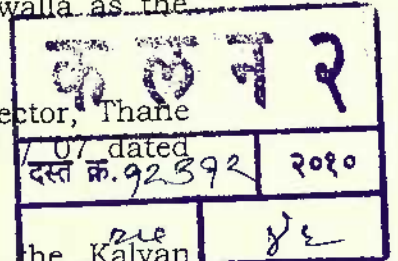 walla as the
क ल न २
ector, Thane
/ 07 dated
दस्त क्र. १२३१२ २०१०
the Kalyan